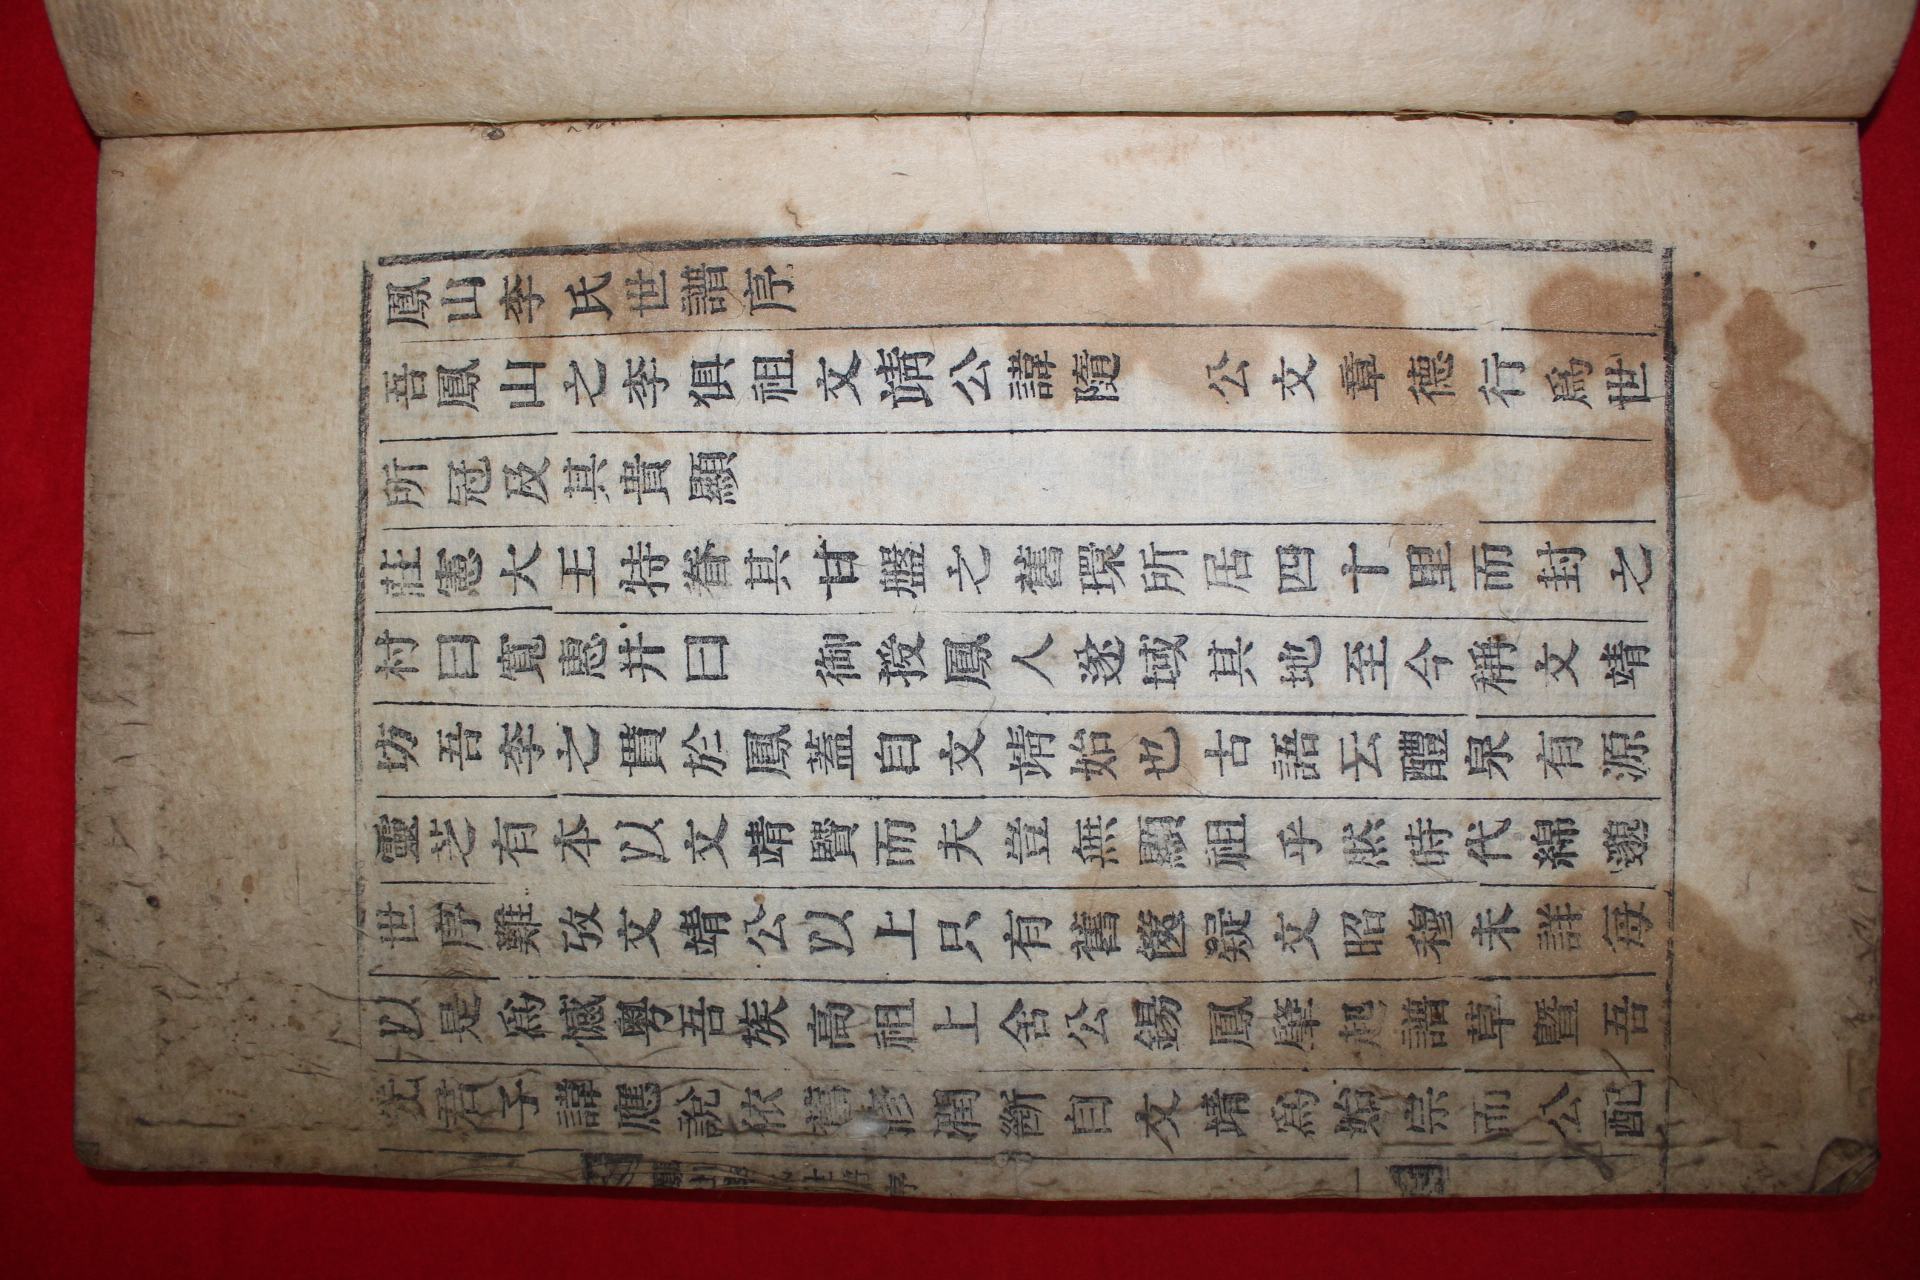 鳳山李氏世譜序
吾鳳山之李俱祖文靖公諱隨 公文章德行爲世
所冠及其貴顯
莊憲大王特眷其甘盤之舊環所居四十里而封之
村曰寬惠井曰 御授鳳人遂域其地至今稱文靖
坊吾李之貫於鳳蓋自文靖始也古語云醴泉有源
靈芝有本以文靖賢而夫豈無顯祖乎然時代綿邈
世序難攷文靖公以上只有舊篋疑文昭穆未詳每
以是爲憾粤吾族高祖上舍公錫鳳肇起譜草曁吾
先君子諱應說依舊修潤斷自文靖爲始宗而公配
鳳山李氏世譜 序 一